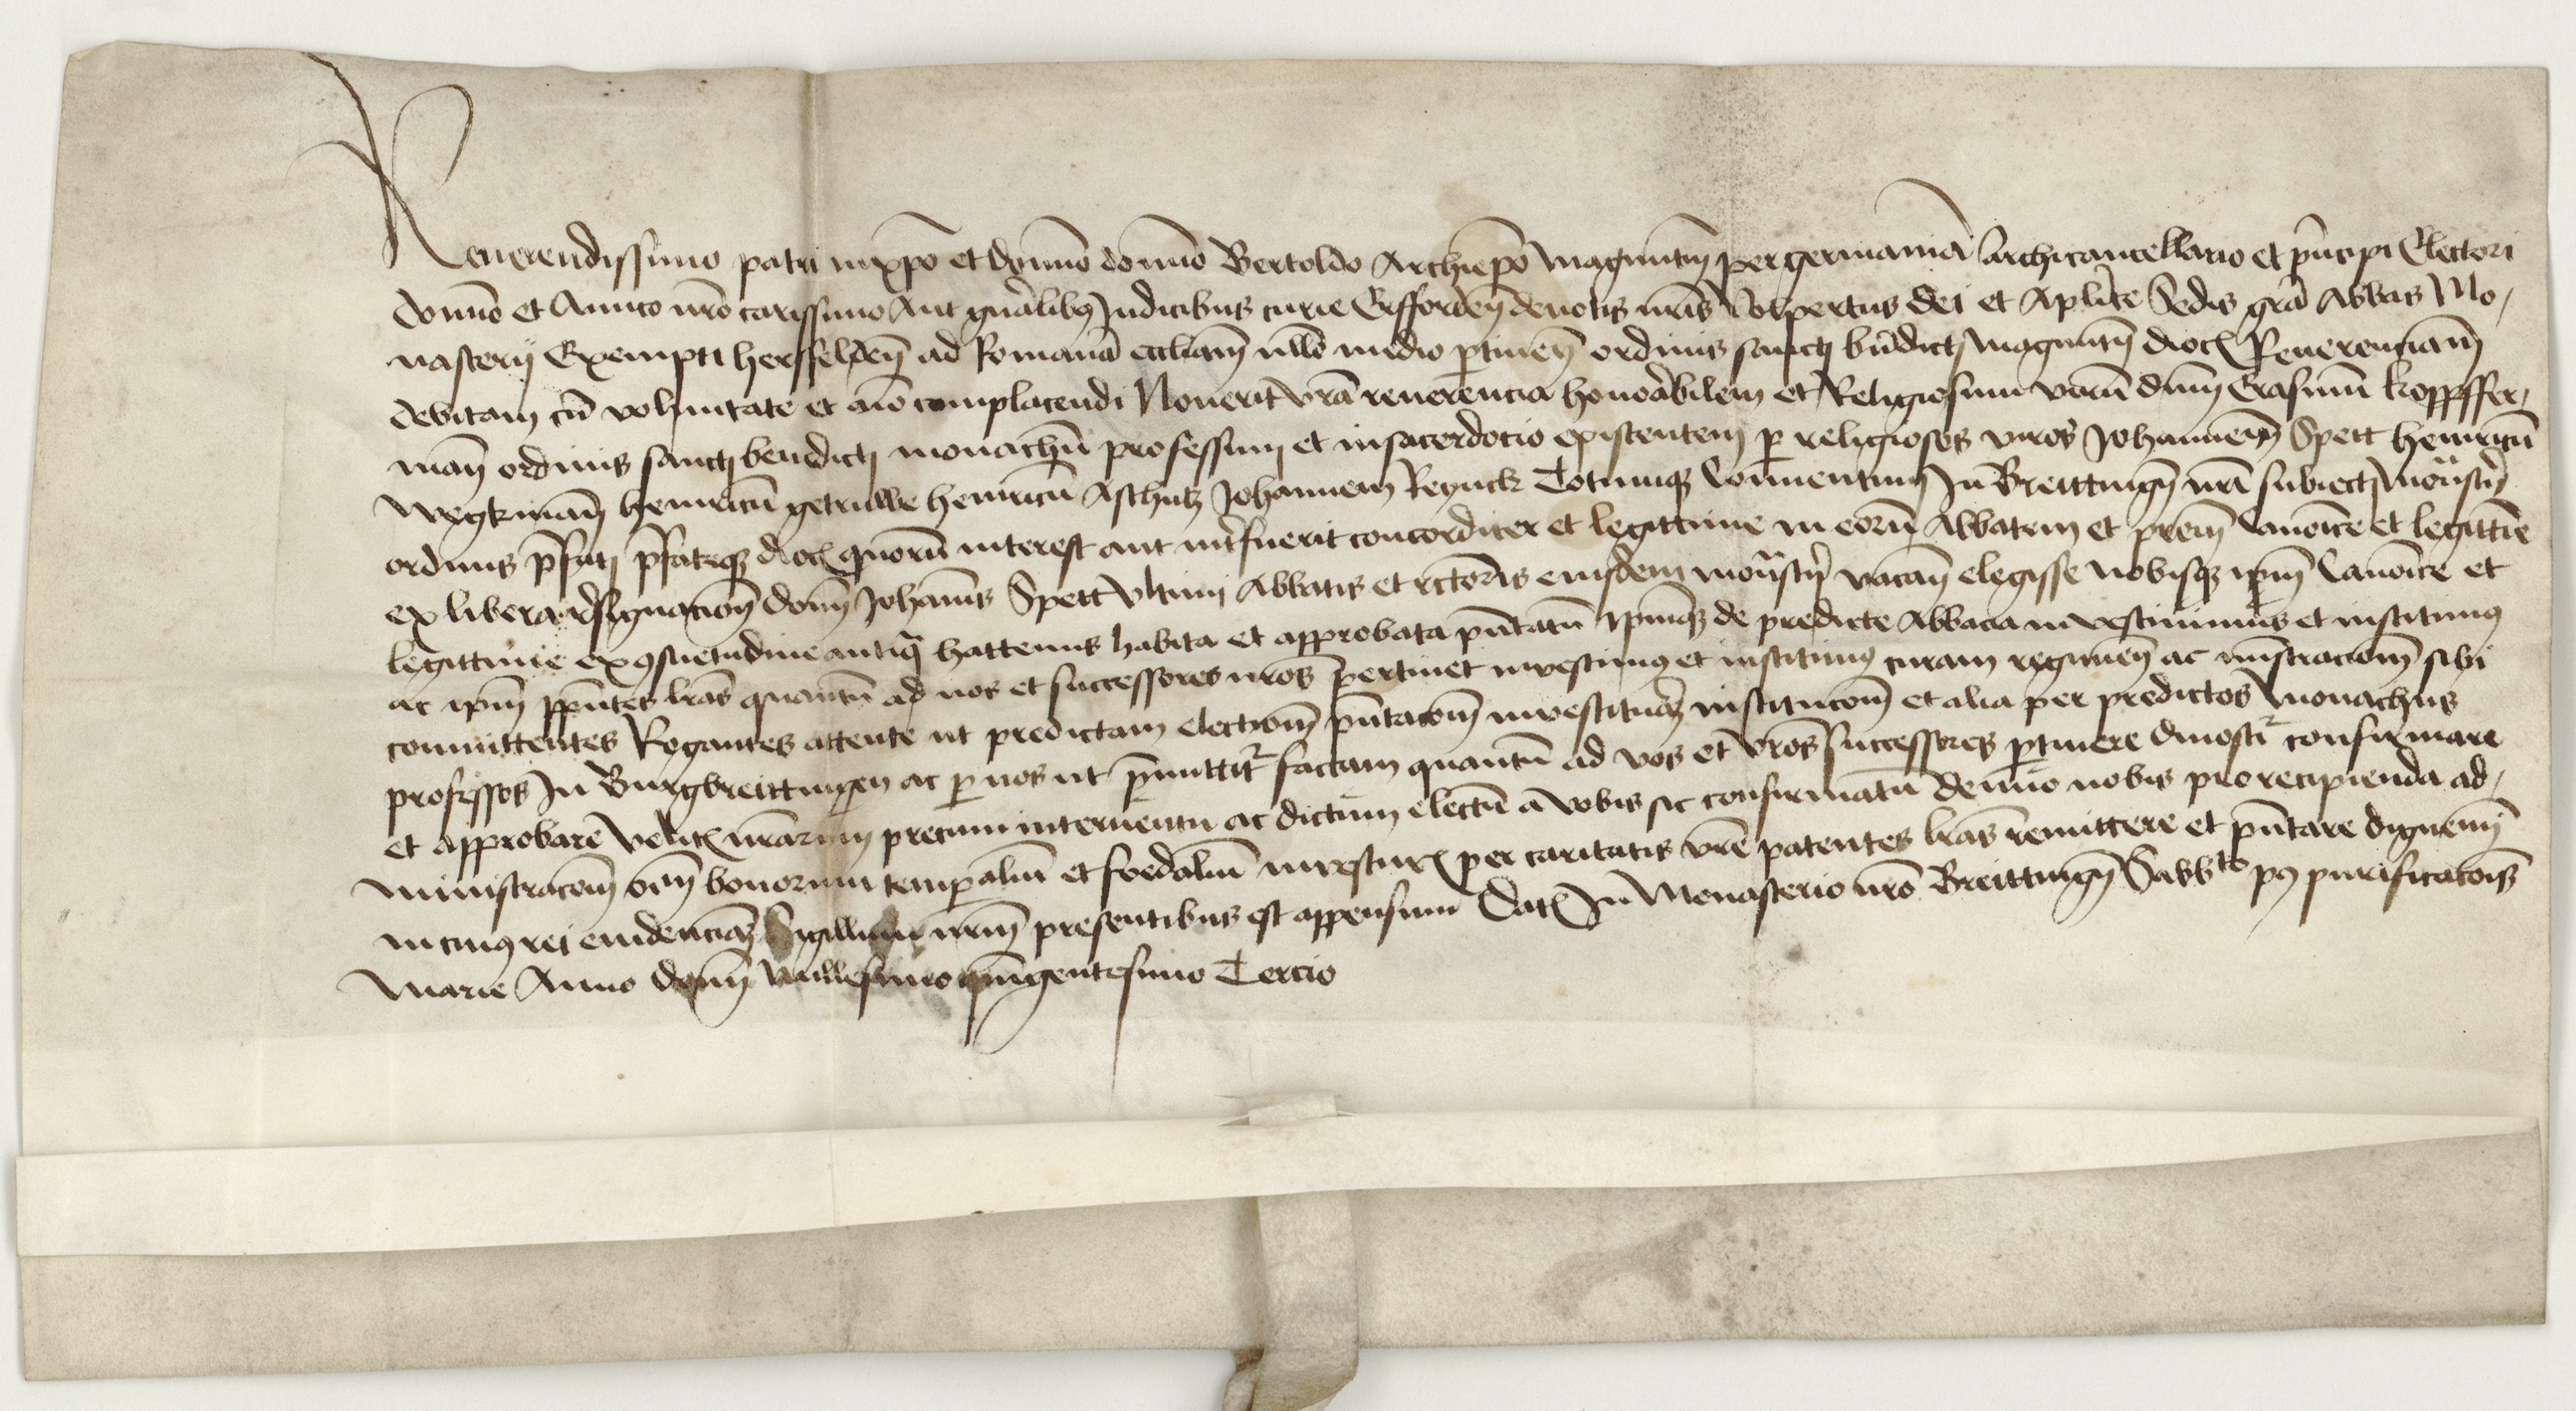 Reuerendissimo patri in xpo et domno domno Bertoldo Archiepo Maguntin per germaniā Archicancellario et pⁱncipi Electori
domno et Amico nr̄o carissimo Aut gnālibꝫ Judicibus curie Erfforden deuotis nr̄is Volpertus dei et Aplīce Sedis gr̄a Abbas Mo,
nasterij Exempti hersfelden ad Romanā eccliam nllo medio ꝑtinen ordinis sancti bndicti Maguntn dioc Reuerenciam
debitam cū voluntate et aīo complacendi Nouerit vrā reuerencia honorābilem et Religiosum virū dnm Erasmū kopffer,
man ordinis sancti bendicti monachū professum et in sacerdocio existentem ꝑ religiosos viros Johannem Spett heinricū
wegkman heinricū getruwe heinricū Aschutz Johannem Reynck Totumqꝫ Conuentum In Breittingn nr̄i subiecti mon̄sterij
ordinis p̄fati p̄fateqꝫ dioc quorū interest aut int̄fuerit concorditer et legittime in eorū Abbatem et prēm Canonīce et legittīe
ex libera resignacion domn Johannis Spett vltimj Abbatis et rectoris eiusdem mon̄sterij vacan elegisse nobisqꝫ ipm Canonīce et
legittime ex ꝯsuetudine antiqua hactenus habita et approbata pn̄tatū Ipmqꝫ de predicte Abbacia investiuimus et instituimꝰ
ac ipm p pn̄tes lr̄as quantū ad nos et successores nr̄os pertinet investimꝰ et instituimꝰ curam regimen ac mīstracionem sibi
committentes Rogantes attente ut predictam electionem pn̄tacōm investituram institucōm et alia per predictos Monachus
professos In Burgbreittingen ac ꝑ nos ut p̄mittitur factam quantū ad vos et vr̄os successores ꝑtinere dinoscitur confirmare
et approbare velitis nr̄arum precum interuentu ac dictum electū a vobis sic confirmatū denuo nobis pro recipienda ad,
ministracōem om̄ bonorum temꝑaliū et feodaliū investitur per caritatis vr̄e patentes lr̄as remittere et pn̄tare dignemj
in cuiꝰ rei euidenciam Sigillum nr̄m presentibus est appensum Dat In Monasterio nr̄o Breittingn Sabbto pꝰ purificacōis
Marie Anno domn Millesimo quingentesimo Tercio